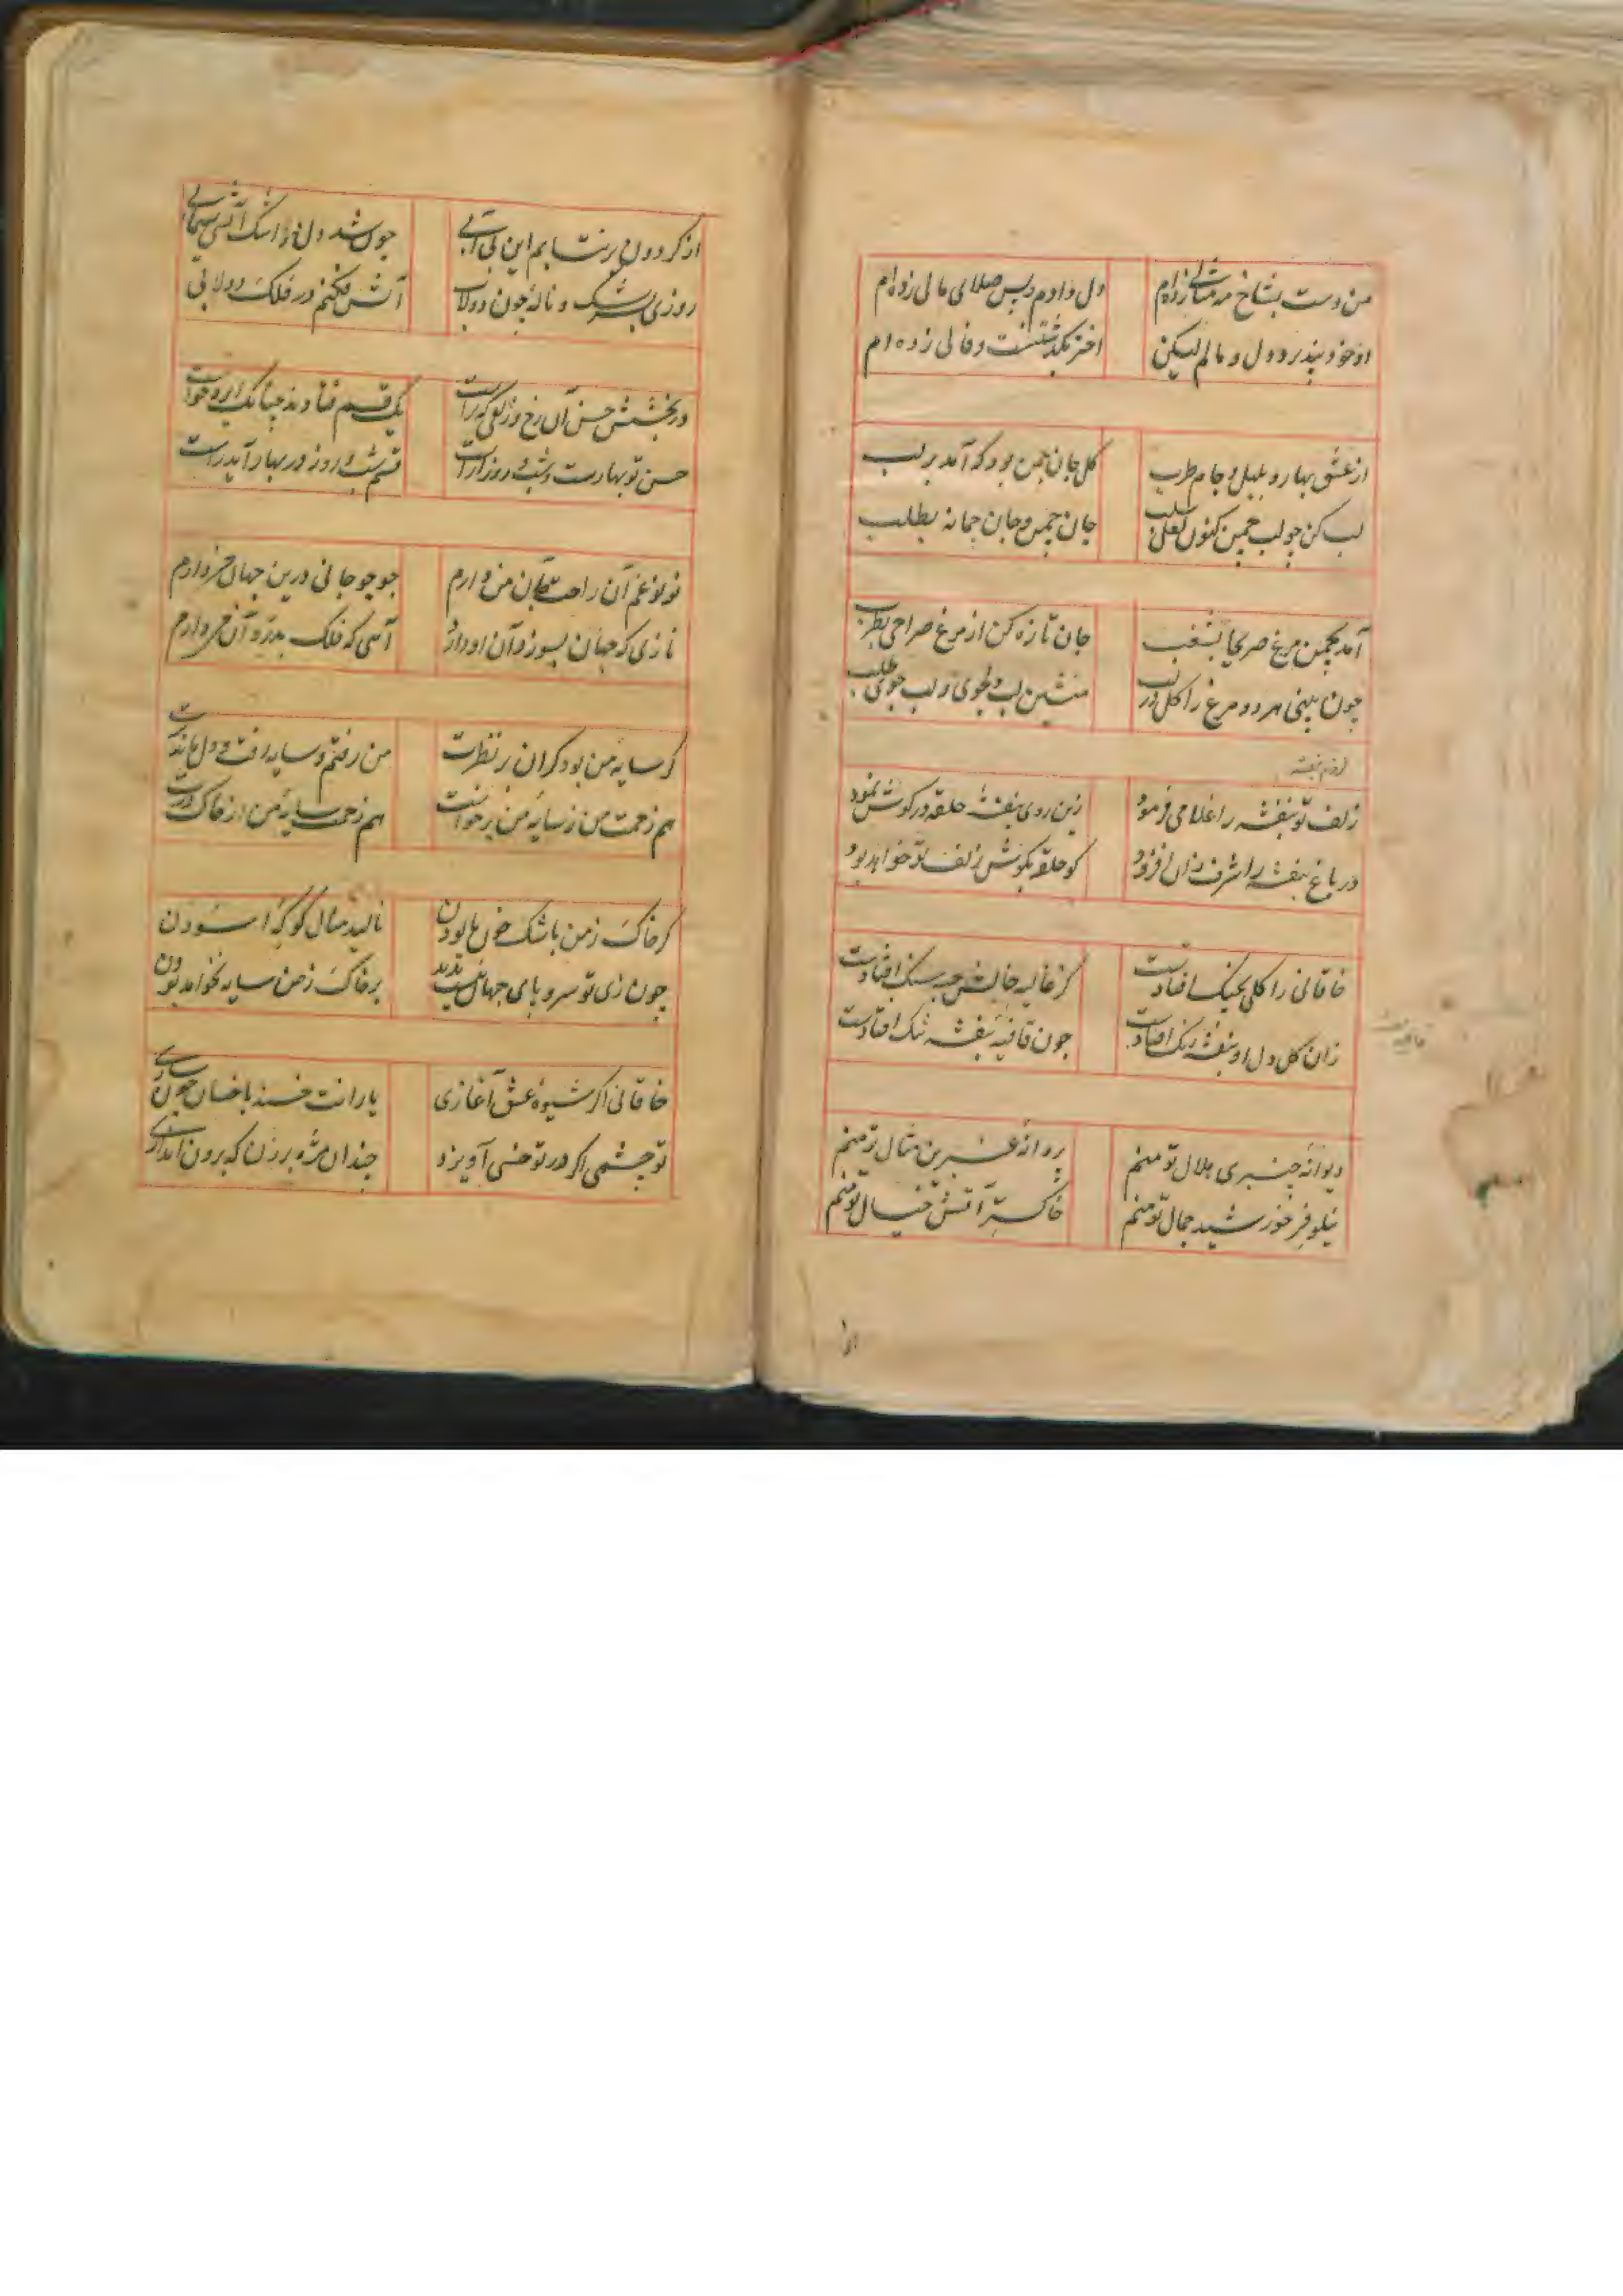 من دست بشاخ مه مثالی زده‌ام
دل دادم و پس صلای مالی زده‌ام
او خود نپذیرد دل و مالم لیکن
اختر بگذشتنست و فالی زده‌ام
از عشق بهار و بلبل و جام طرب
گل جان چمن بود که آمد بر لب
لب کن چو لب چمن کنون لعل سلب
جان چمن و جان چمانه بطلب
آمد بچمن مرغ صراحی بشغب
جان تازه کن از مرغ صراحی بطرب
چون بینی هر دو مرغ را گل در لب
منشین لب جوی و لب جوی طلب
زلف تو بنفشه را غلامی فرمود
زین روی بنفشه حلقه در گوش نمود
در باغ بنفشه را شرف زان افزود
کو حلقه بگوش زلف تو خواهد بود
خاقانی را گلی بچنگ افتادست
کز غالیه خالش جو سنگ افتادست
زان گل دل او بنفشه رنگ افتادست
چون قافیهٔ بنفشه تنگ افتادست
دیوانهٔ چنبری هلال تو منم
پروانهٔ عنبرین مثال تو منم
نیلوفر خورشید جمال تو منم
خاکستر آتش خیال تو منم
از گردون بر نتابم این بی آبی
چون شد دل و اشک آتشی سیمابی
روزی بسرشک و نالهٔ چون دولاب
آتش فکنم در فلک دولابی
در بخشش حسن آن رخ و زلف که راست
یک قسم فتادند چنانک ایزد خواست
حسن تو بهارست و شب و روز آراست
قسم شب و روز در بهار آید راست
نونو غم آن راحت جان من دارم
جوجو جانی درین جهان من دارم
نازی که جهان بسوزد آن او دارد
آهی که فلک بدرد آن من دارم
گر سایهٔ من بود گران در نظرت
من رفتم و سایه رفت و دل ماند برت
هم زحمت من ز سایهٔ من برخاست
هم زحمت سایهٔ من از خاک درت
گر خاک ز من باشک خون
نالید
چون زی تو سر و پای جهان
بر خاک ز من سایه نخواهد بودن
خاقانی اگر شیوهٔ عشق آغازی
یارانت خسند با خسان چون سازی
تو چشمی اگر در تو خسی آویزد
چندان مژه بر زن که برون اندازی